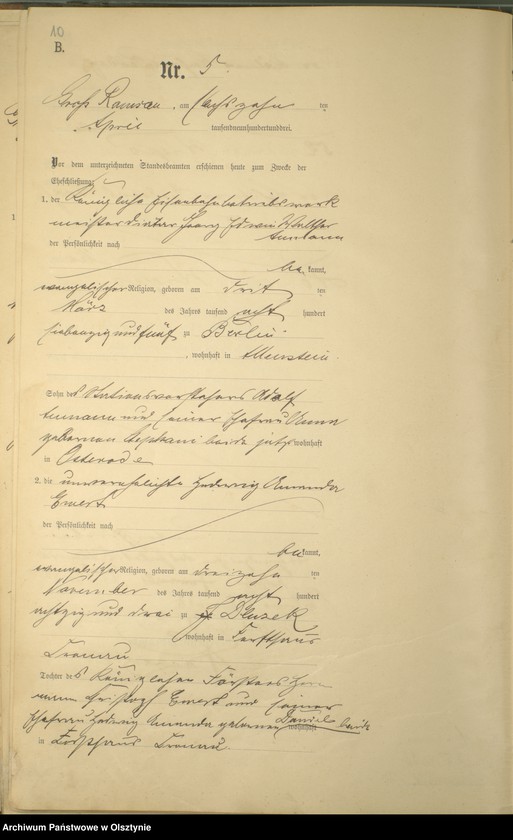 10
B.
Nr. 5
Groß Ramsau, am sechszehn ten
April tausendneunhundertunddrei.
Vor dem unterzeichneten Standesbeamten erschienen heute zum Zwecke der
Eheschließung:
1. der Königliche Eisenbahnbetriebswerk
meister Georg Edwin Walther
der Persönlichkeit nach
be kannt,
evangelischer Religion, geboren am dritten
März des Jahres tausend acht hundert
siebenzig und fünf zu Berlin
, wohnhaft in Allenstein.
Sohn des Stationsvorstehers Adolf
und seiner Ehefrau Anna
geborenen Stephani beide jetzt wohnhaft
in Osterode
2. die unverehelichte Hedwig Amanda
Ewert
der Persönlichkeit nach
be kannt,
evangelischer Religion, geboren am dreizehn ten
November des Jahres tausend acht hundert
achtzig und drei zu Dluzek
, wohnhaft in Forsthaus
Tochter des Königlichen Försters Her
mann Ewert und seiner
Ehefrau Hedwig Amanda geborenen Daniels beide wohnhaft
in Forsthaus
Archiwum Państwowe w Olsztynie